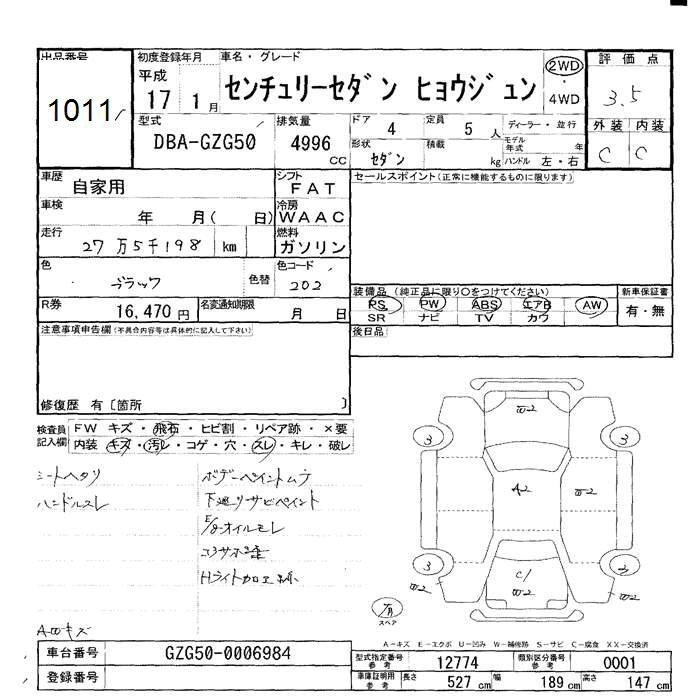 出品番号
1011
初度登録年月
平成
17 1月
車名・グレード
センチュリーセダン ヒョウジュン
2WD
・
4WD
評価点
3.5
外装 内装
C C
型式
DBA-GZG50
排気量
4996
CC
ドア 4
定員 5 人
ディーラー・並行
形状 セダン
積載 kg
モデル年式 年
ハンドル 左・右
車歴 自家用
シフト FAT
車検 年 月( 日)
冷房 WAAC
走行 27万5千198 km
燃料 ガソリン
色 ブラック
色替
色コード 202
R券 16,470円
名変通知期限 月 日
セールスポイント(正常に機能するものに限ります)
装備品(純正品に限り○をつけてください)
PS PW ABS エアB AW
SR ナビ TV カワ
新車保証書
有・無
後日品
注意事項申告欄(不具合内容等は具体的に記入して下さい)
修復歴 有〔箇所 〕
検査員記入欄
FW キズ・飛石・ヒビ割・リペア跡・×要
内装 キズ・汚れ・コゲ・穴・スレ・キレ・破レ
シートヘタリ
ハンドルスレ
ボデーペイントムラ
下廻リサビペイント
E/gオイルモレ
Hライト加工
AWキズ
W2
3
3
A2
W2
3
3
C1
W2
W2
W2
スペア
A-キズ E-エクボ U-凹み W-補修跡 S-サビ C-腐食 XX-交換済
車台番号 GZG50-0006984
登録番号
型式指定番号 参考 12774
類別区分番号 参考 0001
車庫証明用 参考
長さ 527 cm
幅 189 cm
高さ 147 cm